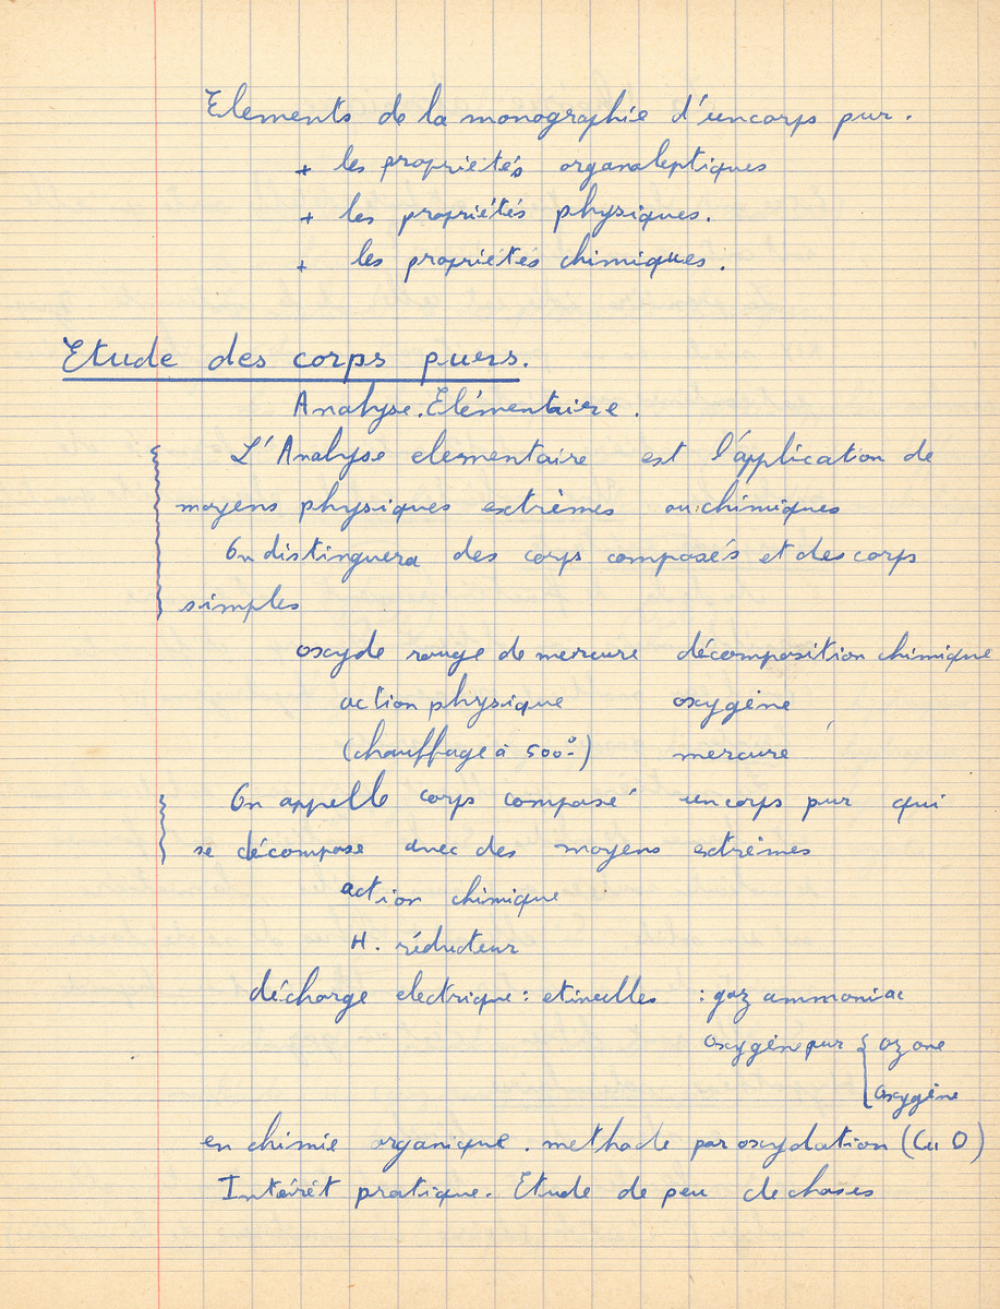 Elements de la monographie d'un corps pur.
+ les propriétés organoleptiques
+ les propriétés physiques.
+ les propriétés chimiques.
Etude des corps purs.
Analyse. Elémentaire.
L'Analyse elementaire est l'application de
moyens physiques extrèmes ou chimiques
On distinguera des corps composés et des corps
simples
oxyde rouge de mercure décomposition chimique
action physique oxygène
(chauffage à 500°) mercure
On appelle corps composé un corps pur qui
se décompose avec des moyens extrèmes
action chimique
H. réducteur
décharge electrique : etincelles : gaz ammoniac
oxygène pur { ozone
oxygène
en chimie organique. methode par oxydation (Cu O)
Intérêt pratique. Etude de peu de choses